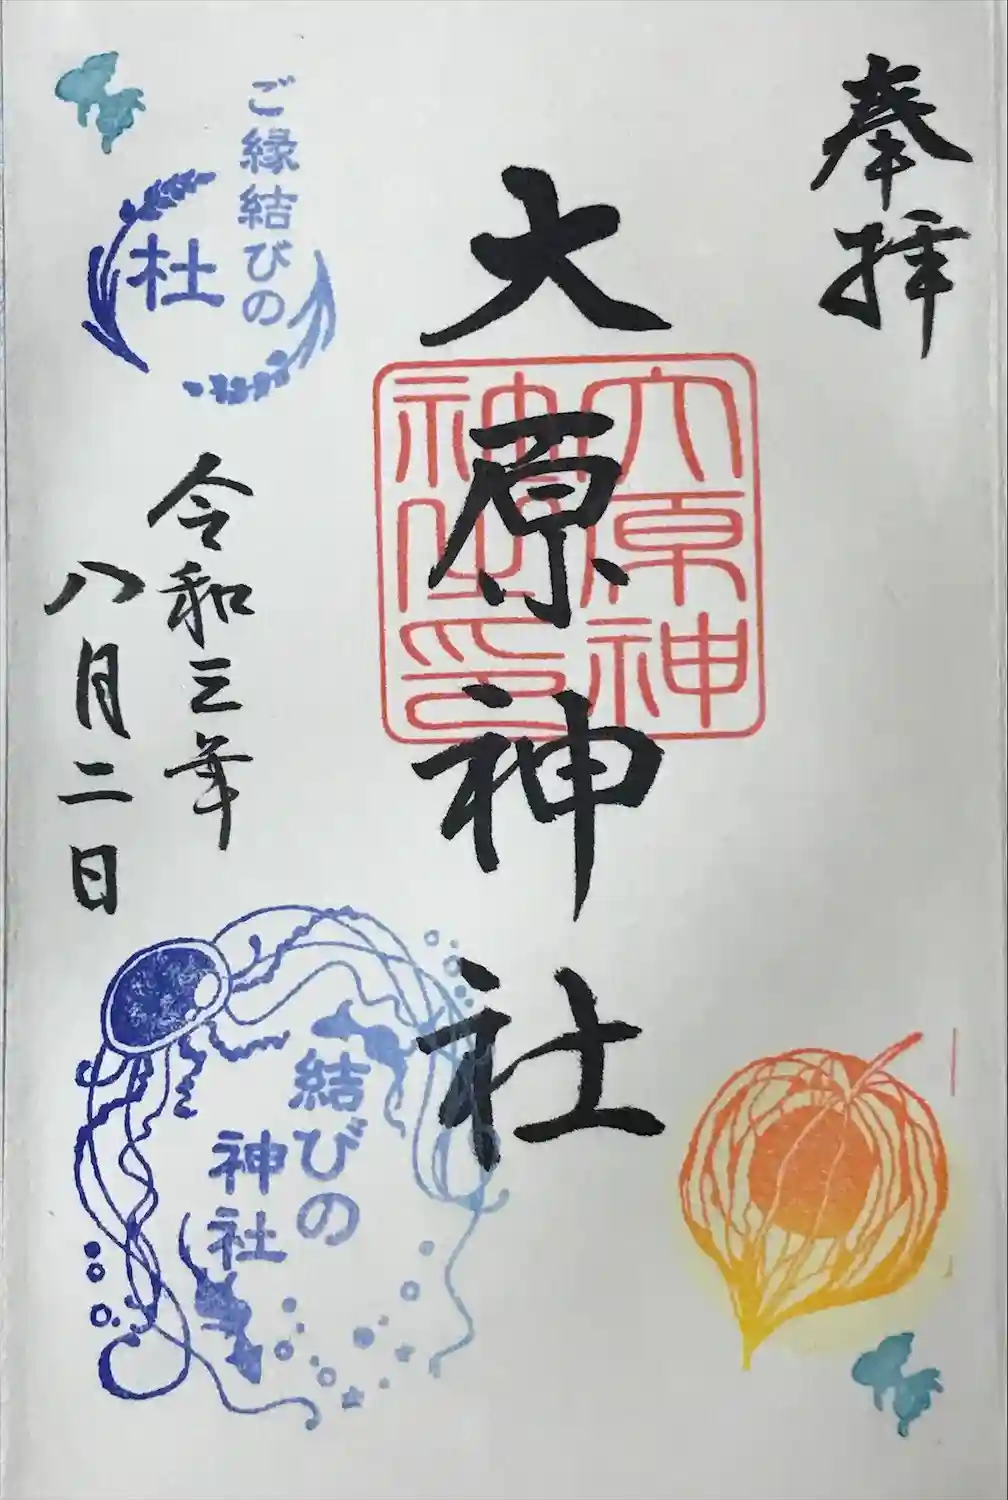 奉拝
大原神社
大原神
神社印
ご縁結びの
杜
令和三年
八月二日
結びの
神社